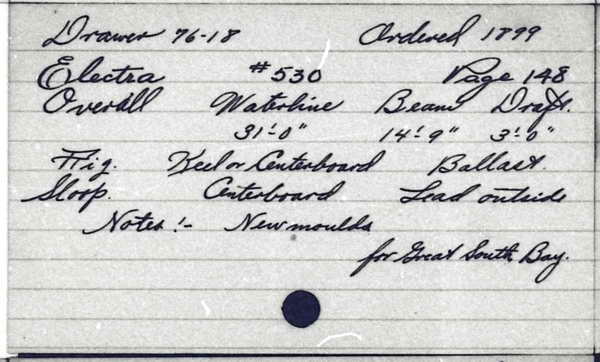 Drawer 76-18 Ordered 1899
Electra #530 Page 148
Overall Waterline Beam Draft.
31'-0" 14'-9" 3'-0"
Rig. Keel or Centerboard Ballast.
Sloop. Centerboard Lead outside
Notes:- New moulds
for Great South Bay.